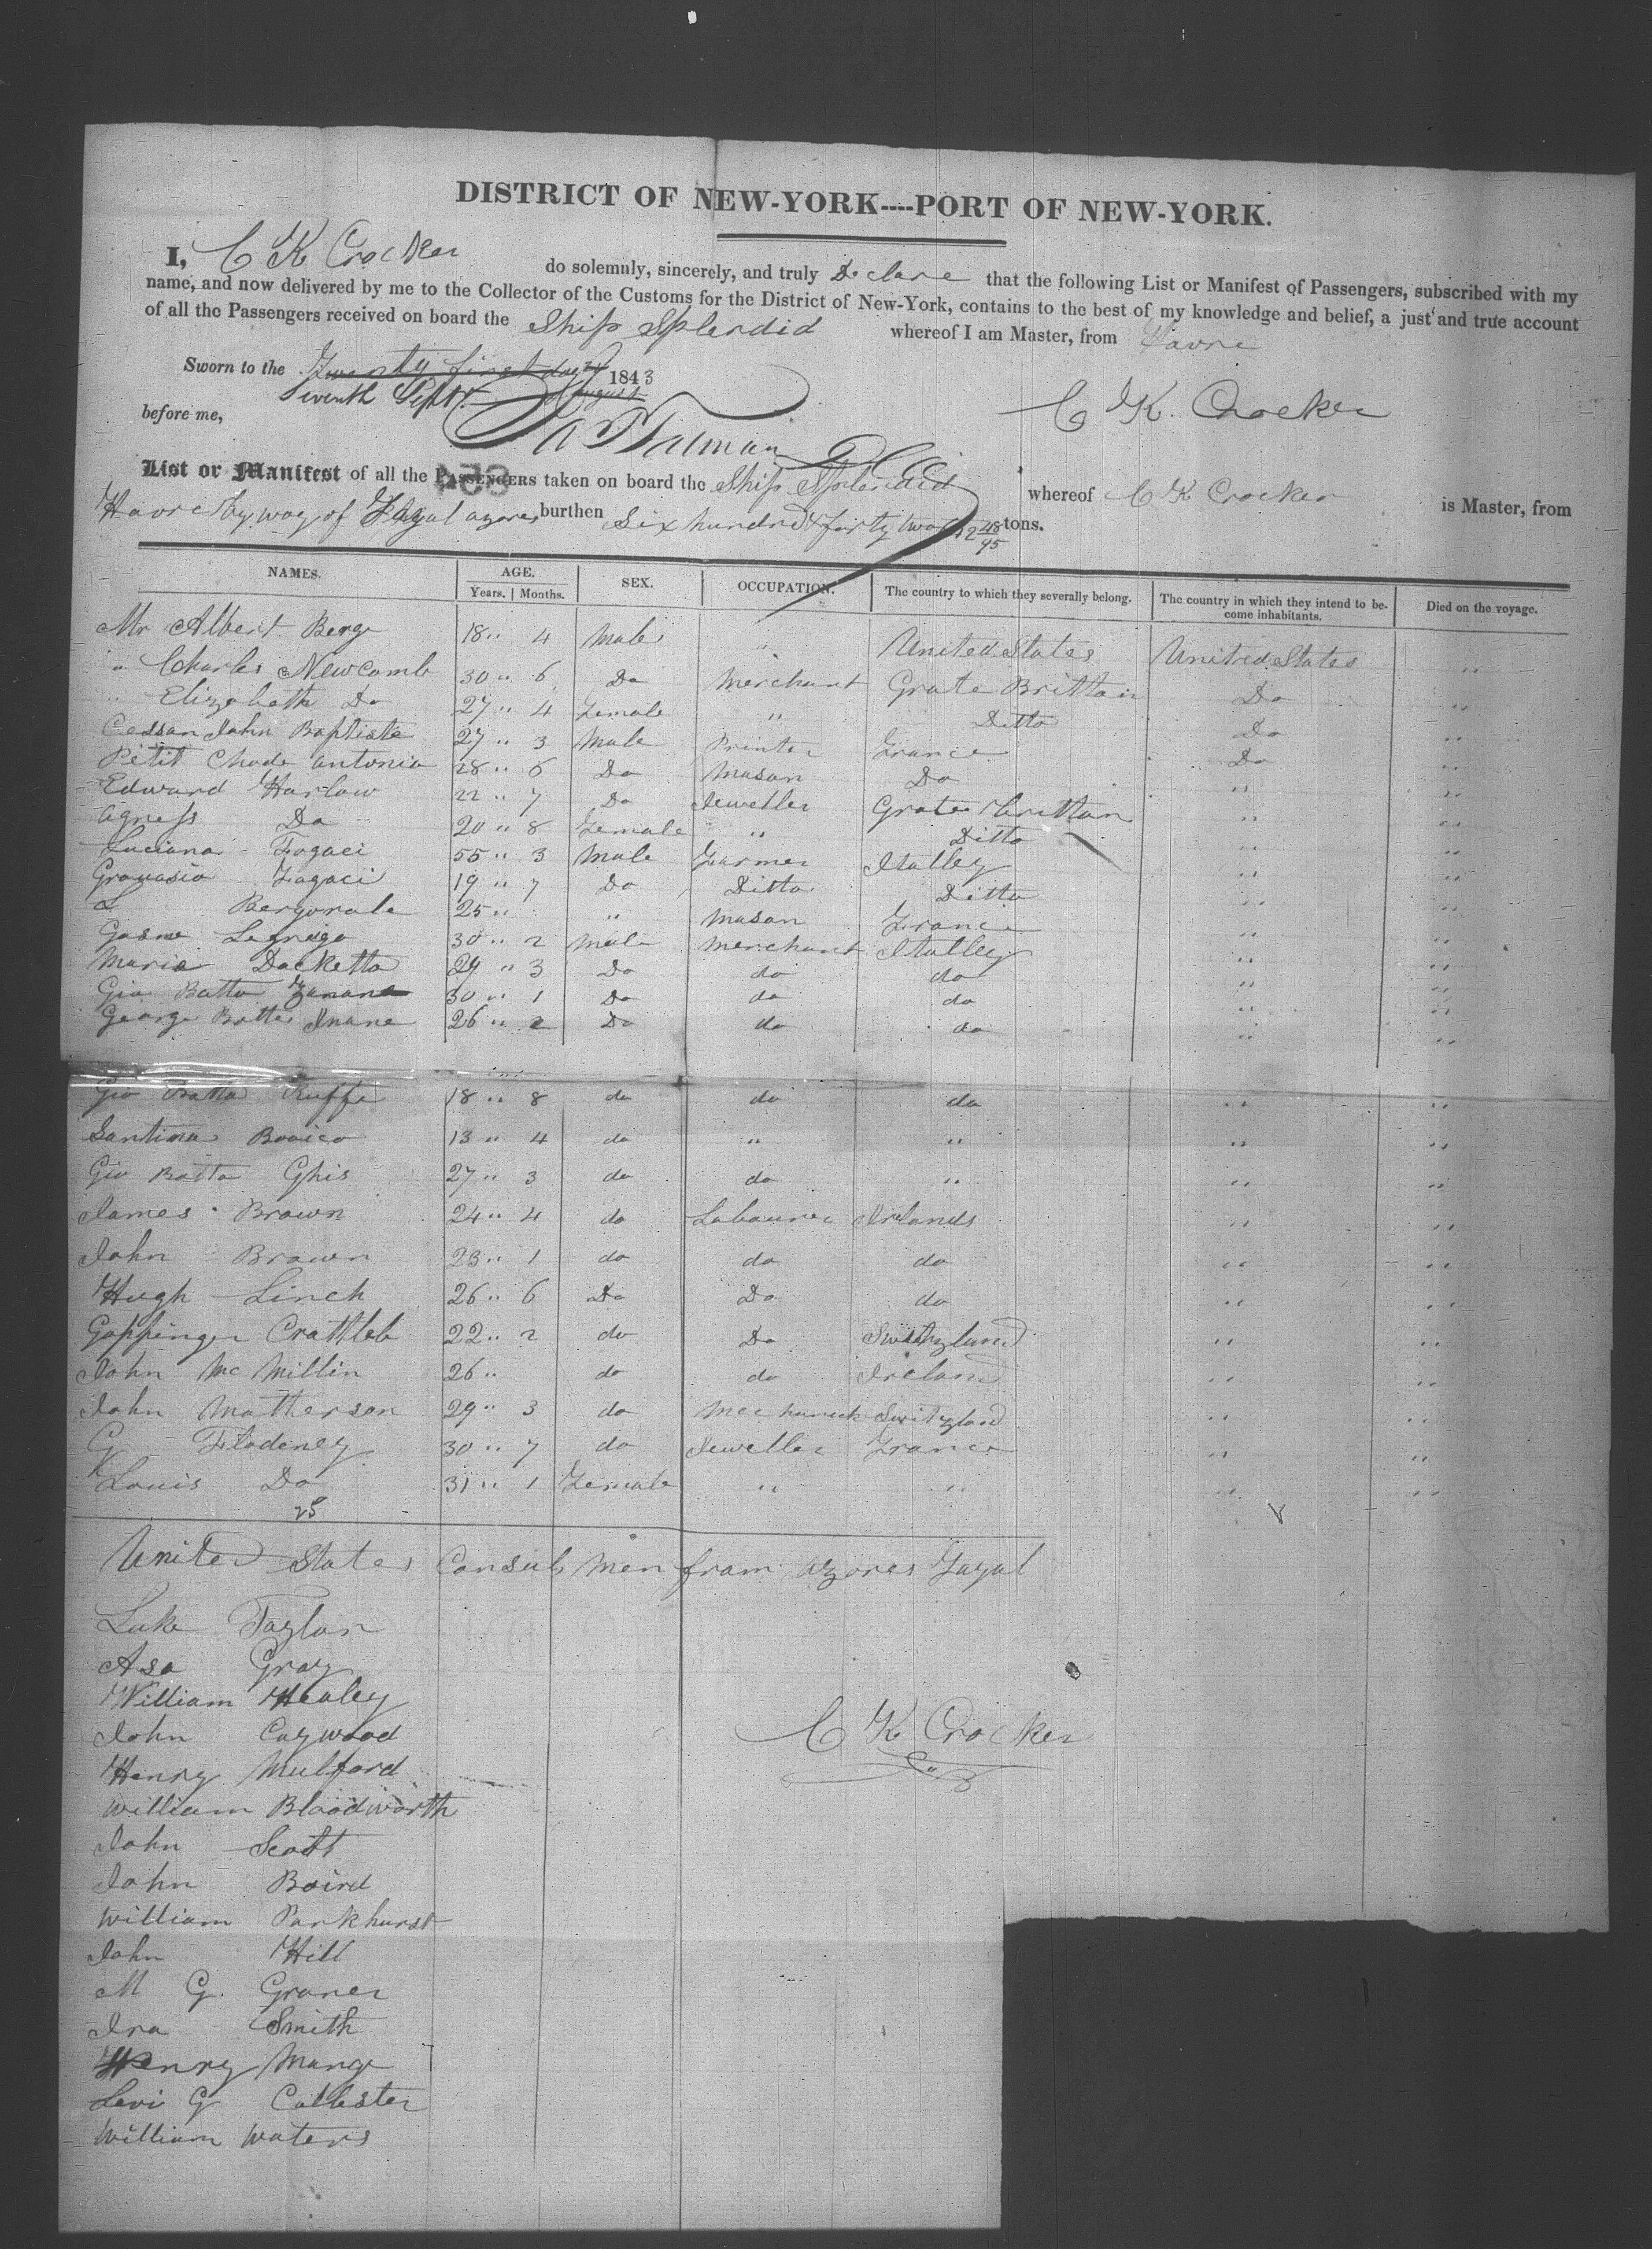 DISTRICT OF NEW-YORK----PORT OF NEW-YORK.
I, C K Crocker do solemnly, sincerely, and truly Declare that the following List or Manifest of Passengers, subscribed with my
name, and now delivered by me to the Collector of the Customs for the District of New-York, contains to the best of my knowledge and belief, a just and true account
of all the Passengers received on board the Ship Splendid whereof I am Master, from Havre
Sworn to the Twenty first day of August 1843
Seventh Septr.
before me, C K. Crocker
List or Manifest of all the PASSENGERS taken on board the Ship Splendid whereof C K Crocker is Master, from
Havre by way of Fayal azores burthen Six hundred & forty two 48/95 tons.
NAMES. AGE. SEX. OCCUPATION. The country to which they severally belong. The country in which they intend to be- Died on the voyage.
Years. Months. come inhabitants.
Mr Albert Berge 18 " 4 Male " United States United States "
" Charles Newcomb 30 " 6 Do Merchant Grate Brittain Do "
" Elizabeth Do 27 " 4 Female " Ditto Do "
Cessan John Baptiste 27 " 3 Male Printer France Do "
Petit Chade antonia 28 " 6 Do Mason Do " "
Edward Harlow 22 " 7 Do Jeweller Grate Brittan " "
Agness Do 20 " 8 Female " Ditto " "
Luciana Fogaci 55 " 3 Male Farmer Italley " "
Fagaci 19 " 7 Do Ditto Ditto " "
L 25 " " Mason France " "
30 " 2 Male Merchant Italley " "
Maria Dacketta 29 " 3 Do do do " "
Gio Batta 30 " 1 Do do do " "
George Batte 26 " 2 Do do do " "
Gio Batta Ruffe 18 " 8 do do do " "
Santina 13 " 4 do " " " "
Gio Batta Ghis 27 " 3 do do " " "
James Brown 24 " 4 do Labourer Irelands " "
John Brown 23 " 1 do do do " "
Hugh Linch 26 " 6 Do Do do " "
Goppinger Crattleb 22 " 2 do Do Switzland " "
John Mc Millin 26 " do do Ireland " "
John Matterson 29 " 3 do Mechanick Switzland " "
G Flodeney 30 " 7 do Jeweller France " "
Louis Do 31 " 1 Female " " " "
25
United States Consuls men from azores Fayal
Luke Taylor
Asa Gray
William Healey
John Caywood
Henry Mulford
William Bloodworth
John Scott
John Baird
William Parkhurst
John Hill
M G. Graner
Ira Smith
Henry Mange
Levi G Collester
William Waters
C K Crocker